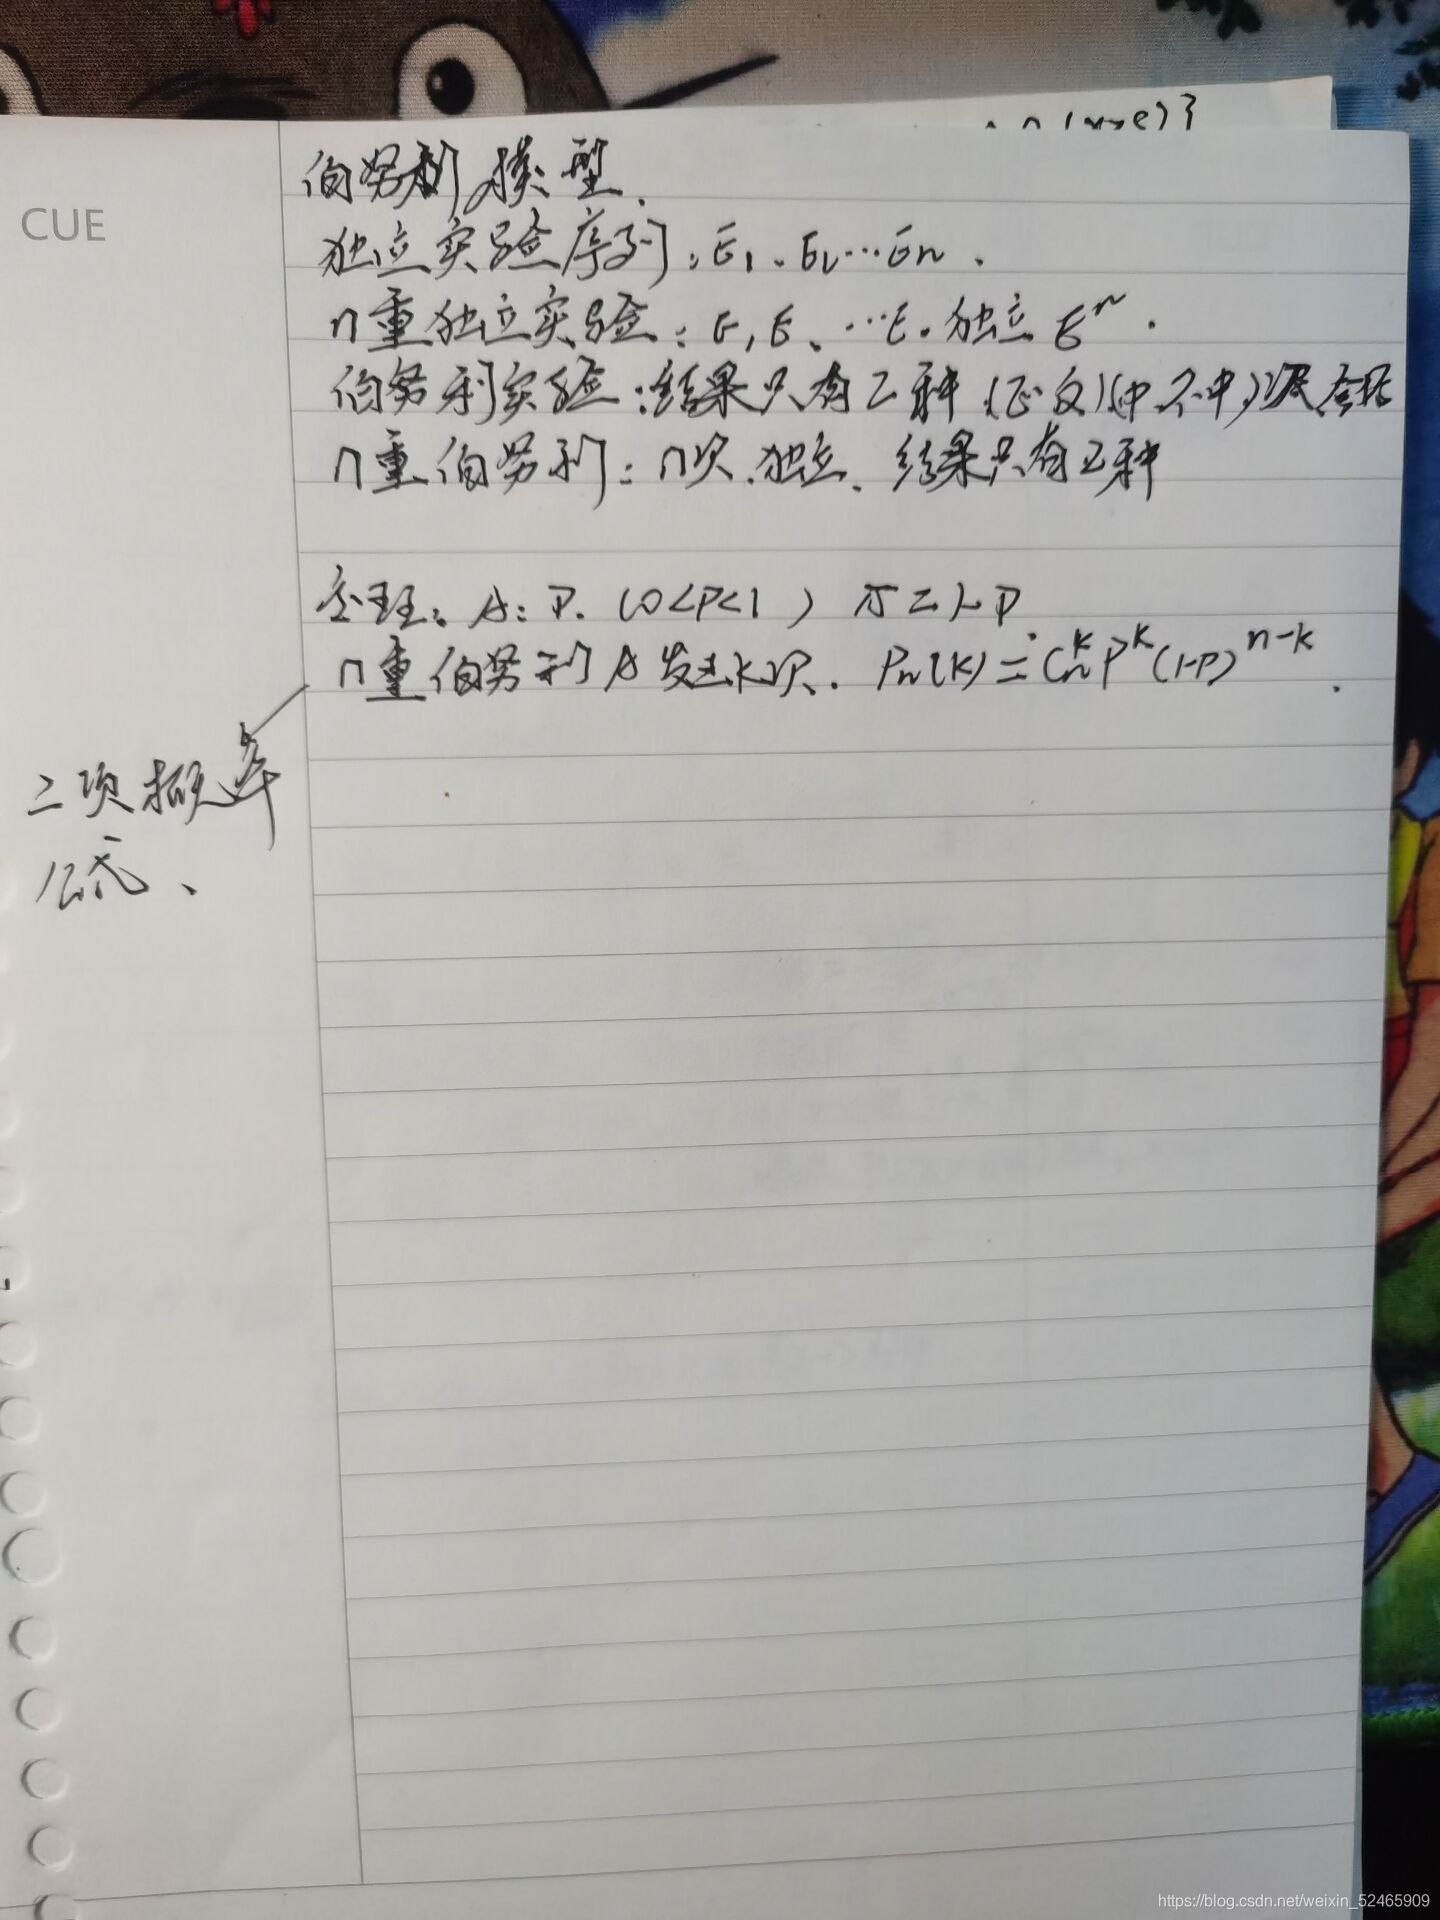 CUE
伯努利模型.
独立实验序列:E1、E2…En.
n重独立实验:E,E、…E.独立 E^n.
伯努利实验:结果只有2种(正反)(中.不中)
n重伯努利:n次.独立.结果只有2种
定理:A:P.(0<P<1) Ā=1-P
n重伯努利A发生k次.Pn(k)=C_n^k P^k (1-P)^{n-k}.
二项概率
公式、
https://blog.csdn.net/weixin_52465909